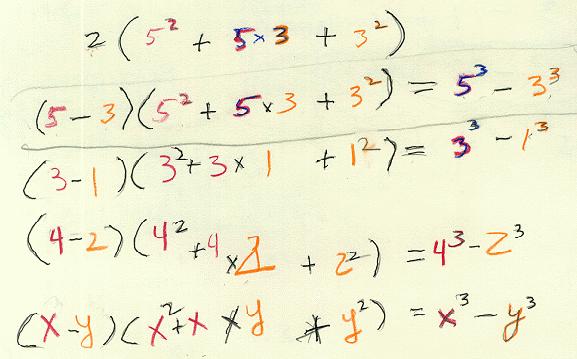 2 ( 5² + 5×3 + 3² )
(5-3)(5² + 5×3 + 3²) = 5³ - 3³
(3-1)(3²+3×1 + 1²) = 3³ - 1³
(4-2)(4²+4×2 + 2²) = 4³-2³
(x-y)(x²+x×y + y²) = x³-y³